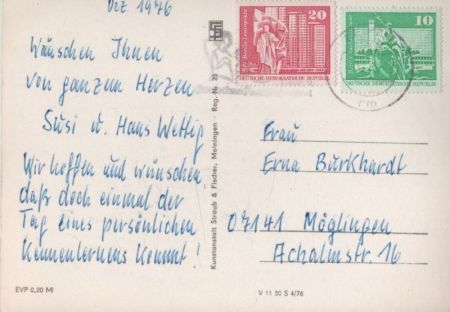 Dez. 1976
Wünschen Ihnen
von ganzem Herzen
Susi u. Hans Wettig
Wir hoffen und wünschen,
daß doch einmal der
Tag eines persönlichen
Kennenlernens kommt!
EVP 0,20 M
Kunstanstalt Straub & Fischer, Meiningen · Reg.-Nr. 23
20
DEUTSCHE DEMOKRATISCHE REPUBLIK
10
DEUTSCHE DEMOKRATISCHE REPUBLIK
Frau
Erna Burkhardt
07141 Möglingen
Achalmstr. 16
V 11 50 S 4/76